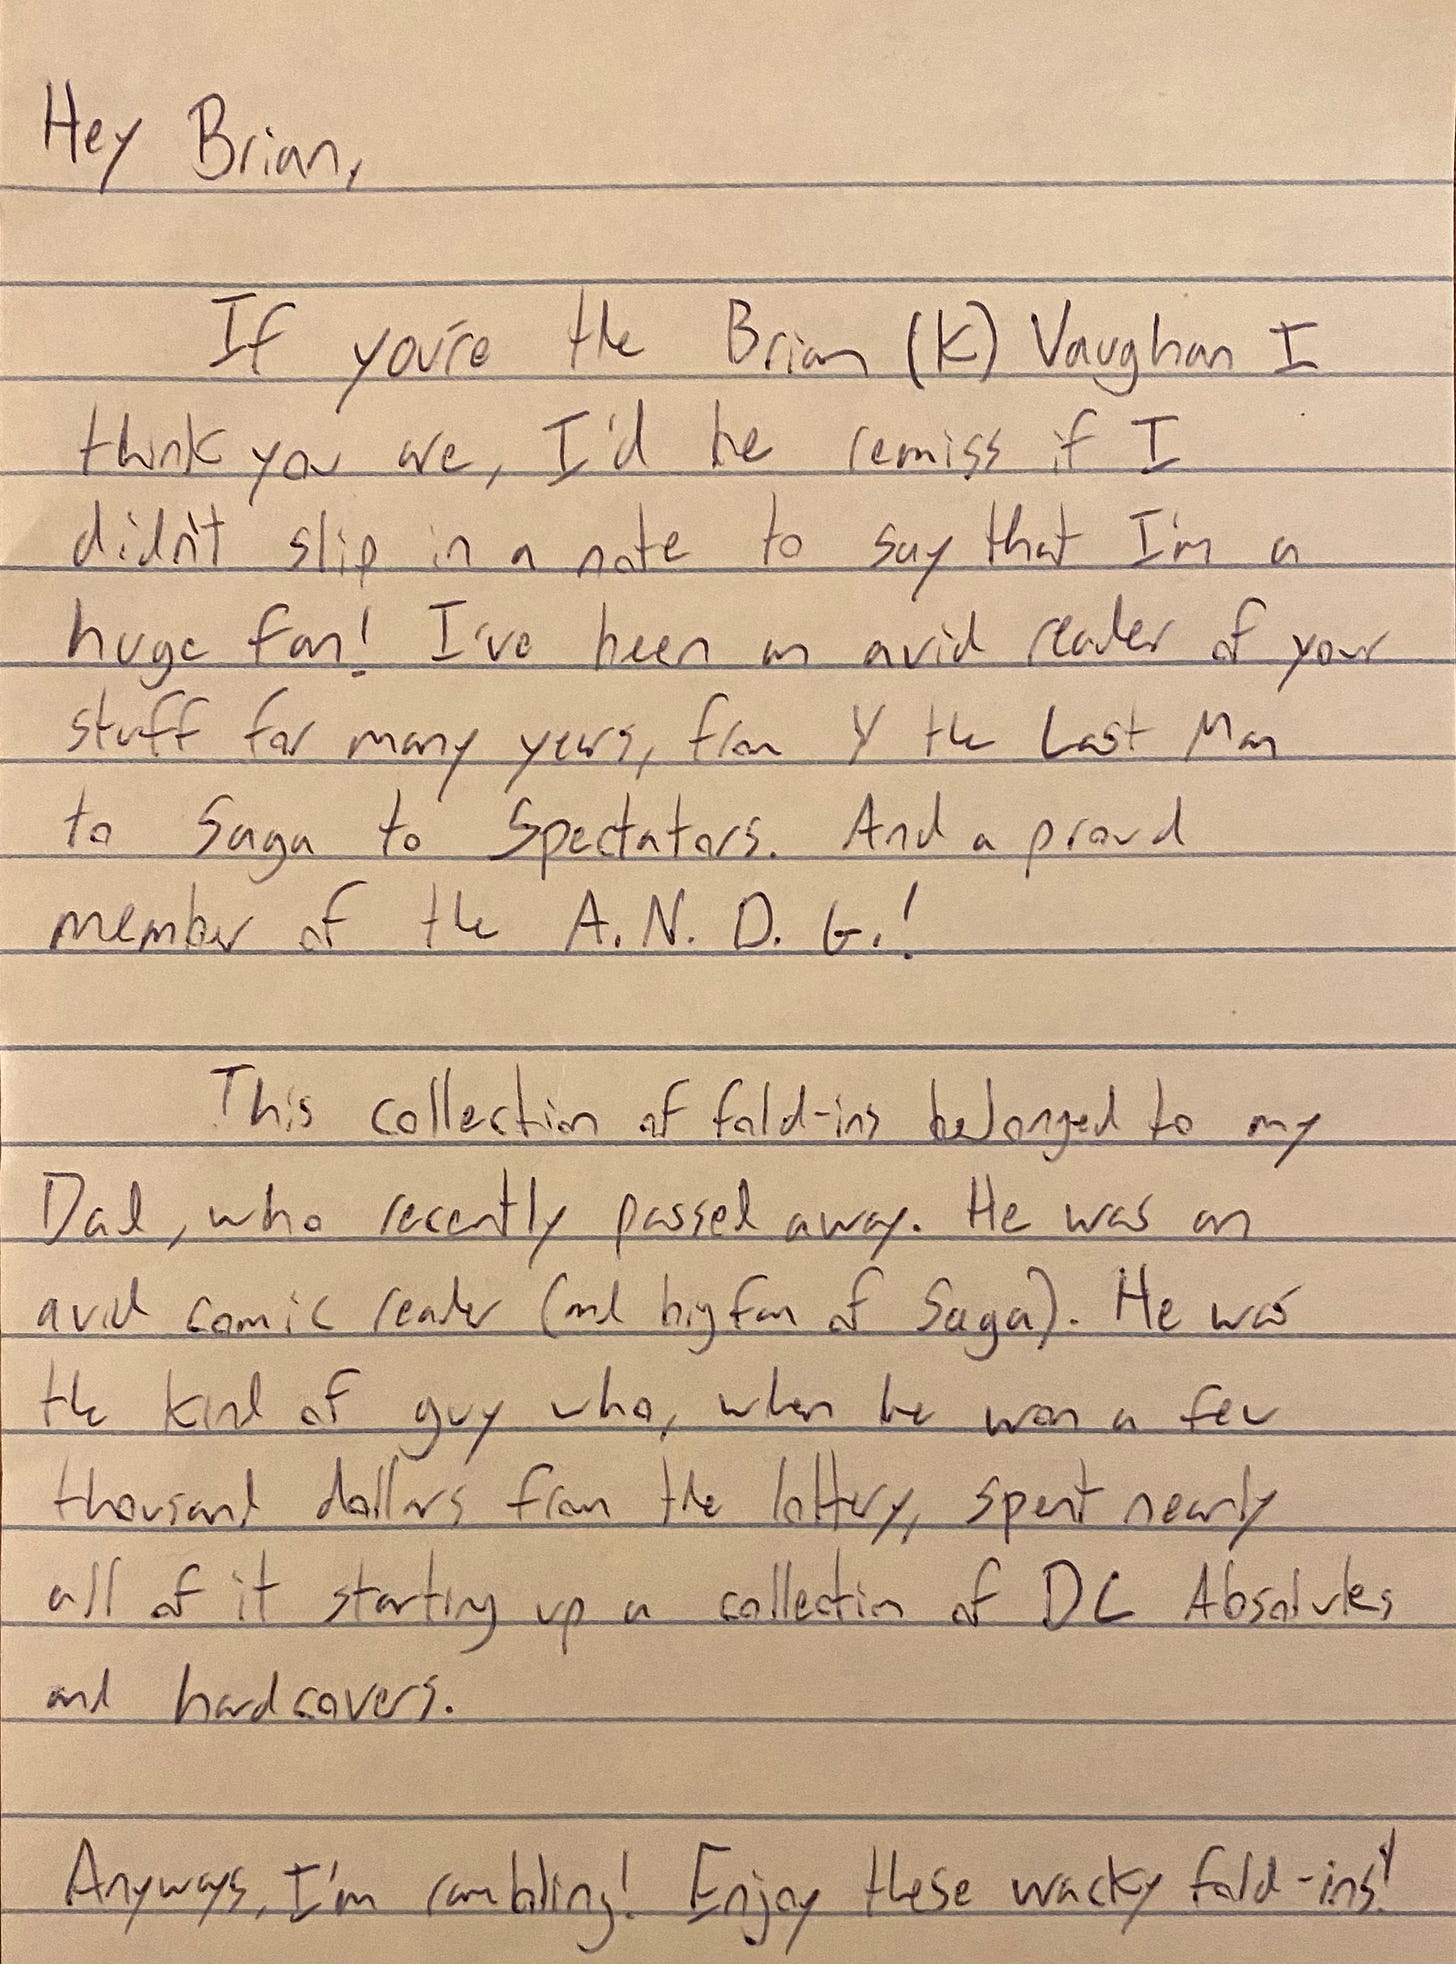 Hey Brian,
If you're the Brian (K) Vaughan I
think you are, I'd be remiss if I
didn't slip in a note to say that I'm a
huge fan! I've been an avid reader of your
stuff for many years, from Y the Last Man
to Saga to Spectators. And a proud
member of the A.N.D.G.!
This collection of fold-ins belonged to my
Dad, who recently passed away. He was an
avid comic reader (and big fan of Saga). He was
the kind of guy who, when he won a few
thousand dollars from the lottery, spent nearly
all of it starting up a collection of DC Absolutes
and hardcovers.
Anyways, I'm rambling! Enjoy these wacky fold-ins!